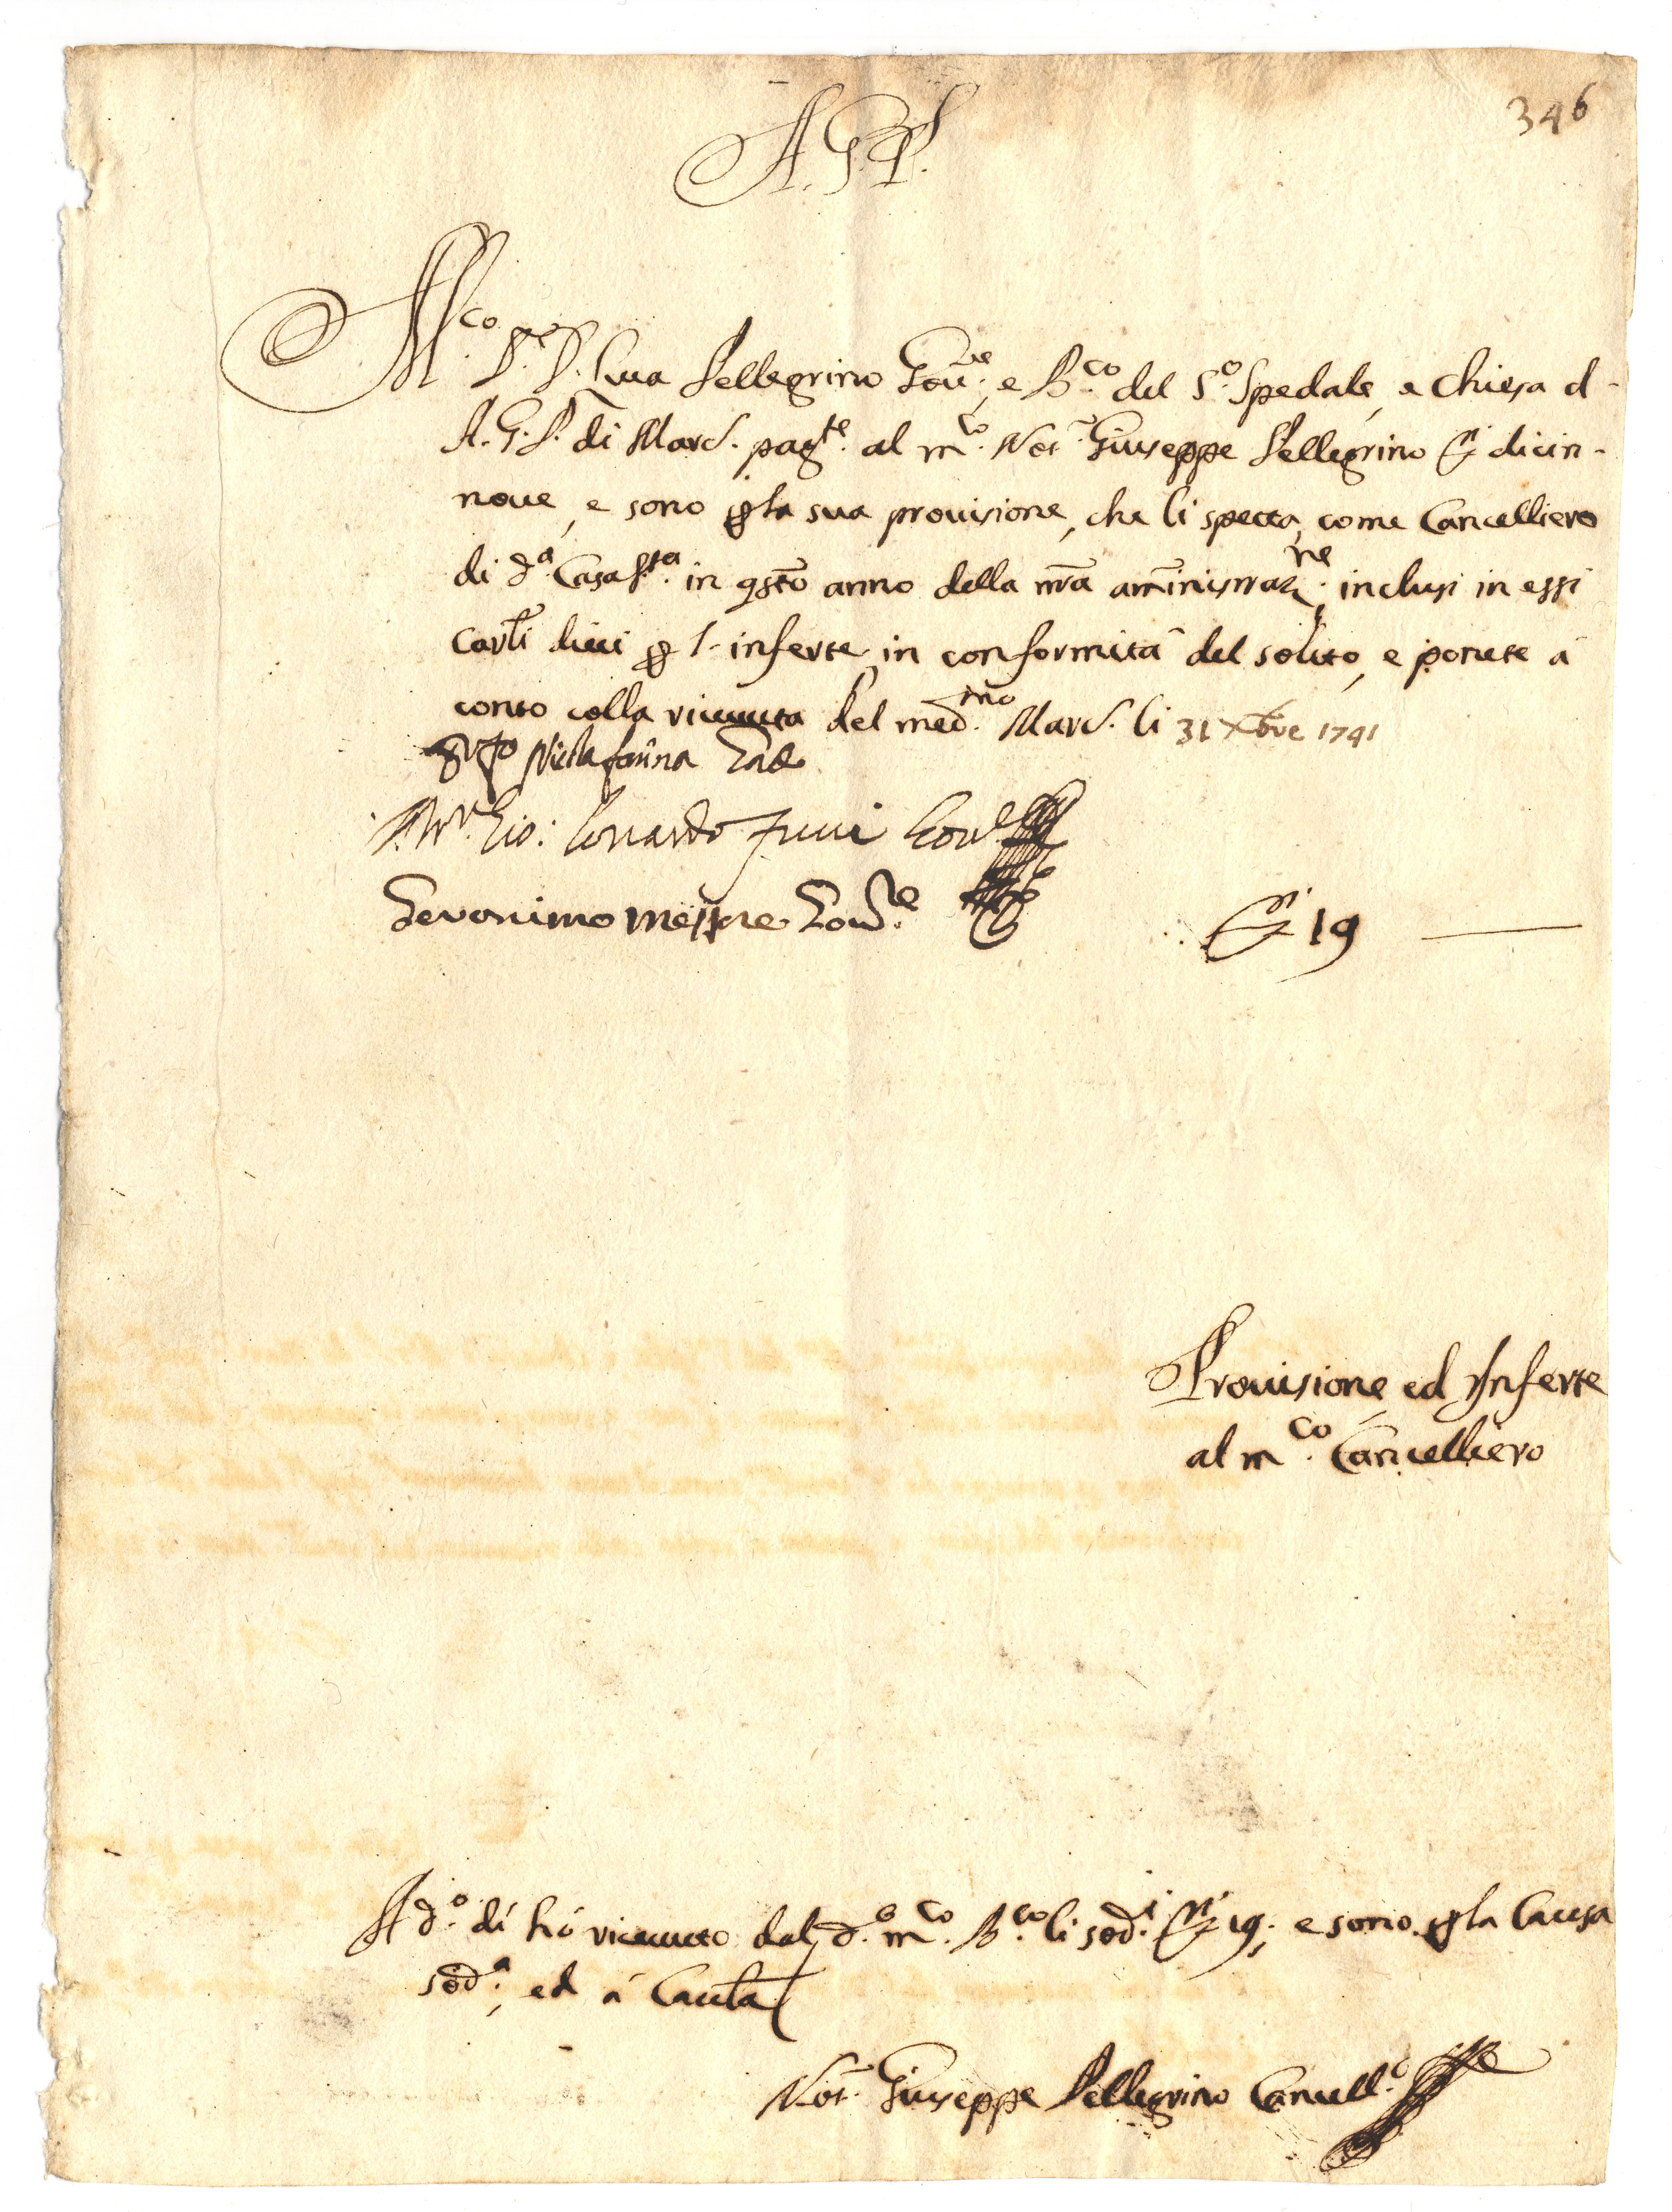 346
A. G. P.
M.co Sr. D. Luca Pellegrino Gov.re, e B.co del S.o Spedale, e Chiesa d-
A. G. P. di Marc. pag.te al m.co Not. Giuseppe Pellegrino D.ti dicin-
nove, e sono p la sua provisione, che li spetta, come Cancelliero
di d.a Casa S.ta in qsto anno della nra amīnistraz.ne, inclusi in essi
carli dieci p l'inferte, in conformità del solito, e ponete à
conto colla ricevuta del med.mo Marc. li 31 Xbre 1741
Nicla farina
Gio: Gov.
Geronimo Gov.re
D.ti 19
Provisione ed Inferte
al m.co Cancelliero
A d.o dì hò ricevuto dal d.o m.co B.co li sod.i D.ti 19; e sono p la Causa
sod.a, ed à Cautla
Not. Giuseppe Pellegrino Cancell.o